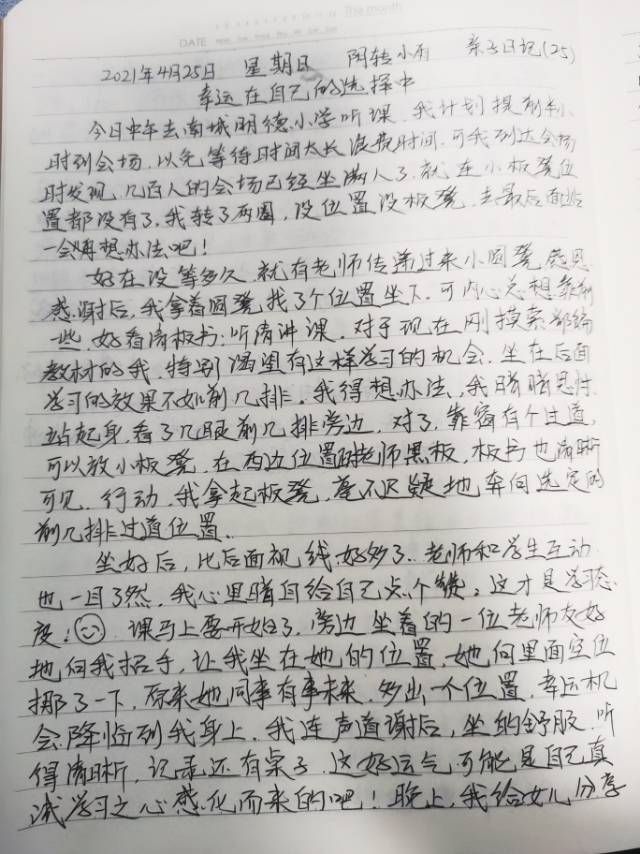 The month
DATE
2021年4月25日 星期日 阴转小雨 亲子日记(25)
幸运在自己的选择中
今日中午去南城明德小学听课，我计划提前半小
时到会场，以免等待时间太长浪费时间，可我到达会场
时发现，几百人的会场已经坐满人了，就连小板凳位
置都没有了，我转了两圈，没位置没板凳，去最后面站
一会再想办法吧！
好在没等多久，就有老师传递过来小圆凳，感恩
感谢后，我拿着圆凳找了个位置坐下，可内心总想靠前
一些，好看清板书，听清讲课，对于现在刚摸索部编
教材的我，特别渴望有这样学习的机会，坐在后面
学习的效果不如前几排，我得想办法，我暗暗思忖，
站起身，看了几眼前几排旁边，对了，靠窗有个过道，
可以放小板凳，在两边位置跟老师黑板，板书也清晰
可见，行动，我拿起板凳，毫不迟疑地奔向选定的
前几排过道位置。
坐好后，比后面视线好多了，老师和学生互动
也一目了然，我心里暗自给自己点个赞：这才是学习态
度！课马上要开始了，旁边坐着的一位老师友好
地向我招手，让我坐在她的位置，她向里面空位
挪了一下，原来她同事有事未来，多出一个位置，幸运机
会降临到我身上，我连声道谢后，坐的舒服，听
得清晰，记录还有桌子，这好运气可能是自己真
诚学习之心感化而来的吧！晚上，我给女儿分享